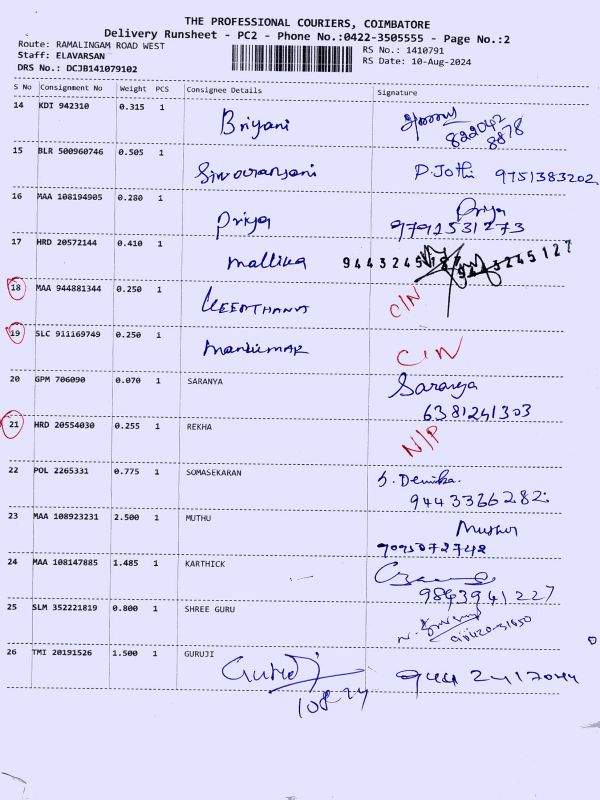 THE PROFESSIONAL COURIERS, COIMBATORE
Delivery Runsheet - PC2 - Phone No.:0422-3505555 - Page No.:2
Route: RAMALINGAM ROAD WEST
Staff: ELAVARSAN
DRS No.: DCJB141079102
RS No.: 1410791
RS Date: 10-Aug-2024
S No Consignment No Weight PCS Consignee Details Signature
14 KDI 942310 0.315 1 Briyani 822042
8878
15 BLR 500960746 0.505 1 P. Jothi 9751383202
16 MAA 108194905 0.280 1 Priya Priya
9791531273
17 HRD 20572144 0.410 1 Mallika 9443245127 9443245127
18 MAA 944881344 0.250 1 KEERTHANA C/N
19 SLC 911169749 0.250 1 C/N
20 GPM 706090 0.070 1 SARANYA Saranya
6381241303
21 HRD 20554030 0.255 1 REKHA N/P
22 POL 2265331 0.775 1 SOMASEKARAN
9443366282
23 MAA 108923231 2.500 1 MUTHU
9095072748
24 MAA 108147885 1.485 1 KARTHICK
9843941227
25 SLM 352221819 0.800 1 SHREE GURU
26 TMI 20191526 1.500 1 GURUJI